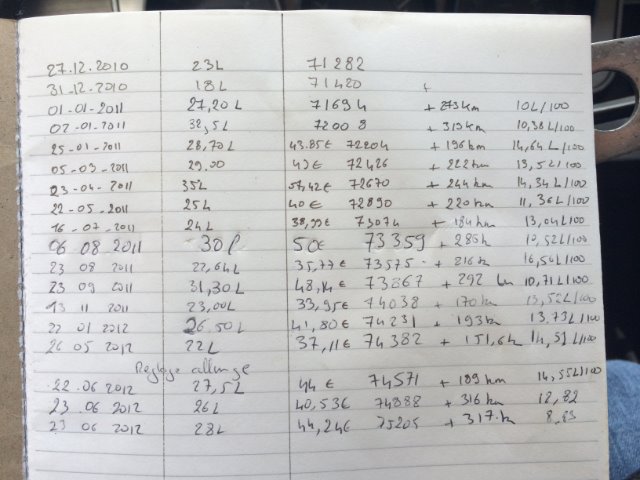 27.12.2010 23L 71282
31-12.2010 18L 71420
01-01-2011 27,20 L 71694 + 273 km 10L/100
02-01-2011 32,5L 72008 + 313 km 10,38L/100
25-01-2011 28,70L 43.85€ 72204 + 196 km 14,64 L/100
05-03-2011 29.00 72426 + 222 km 13,52L/100
23-04-2011 35L 72670 + 244 km 14,34 L/100
22-05-2011 25L 40€ 72890 + 220 km 11,36 L/100
16-07-2011 24L 38,99€ 73074 + 184 km 13,04L/100
06 08 2011 30l 50€ 73359 + 285k 10,52L/100
23 08 2011 35,77€ 73575 + 216k
23 09 2011 31,30L 48,14€ 73867 + 292 km 10,71L/100
13 11 2011 23,00L 33,95€ 74038 + 170km 13,52L/100
22 01 2012 26,50L 41,80€ 74231 + 193k 13,73L/100
26 05 2012 22L 37,11€ 74382 + 151,6k 14,51L/100
Réglage allumage
22.06 2012 27,5L 44€ 74571 + 189 km 14,55L/100
23.06 2012 26L 40,53€ 74888 + 316 km 12,82
23 06 2012 28L 44,24€ 75205 + 317 k 8,83